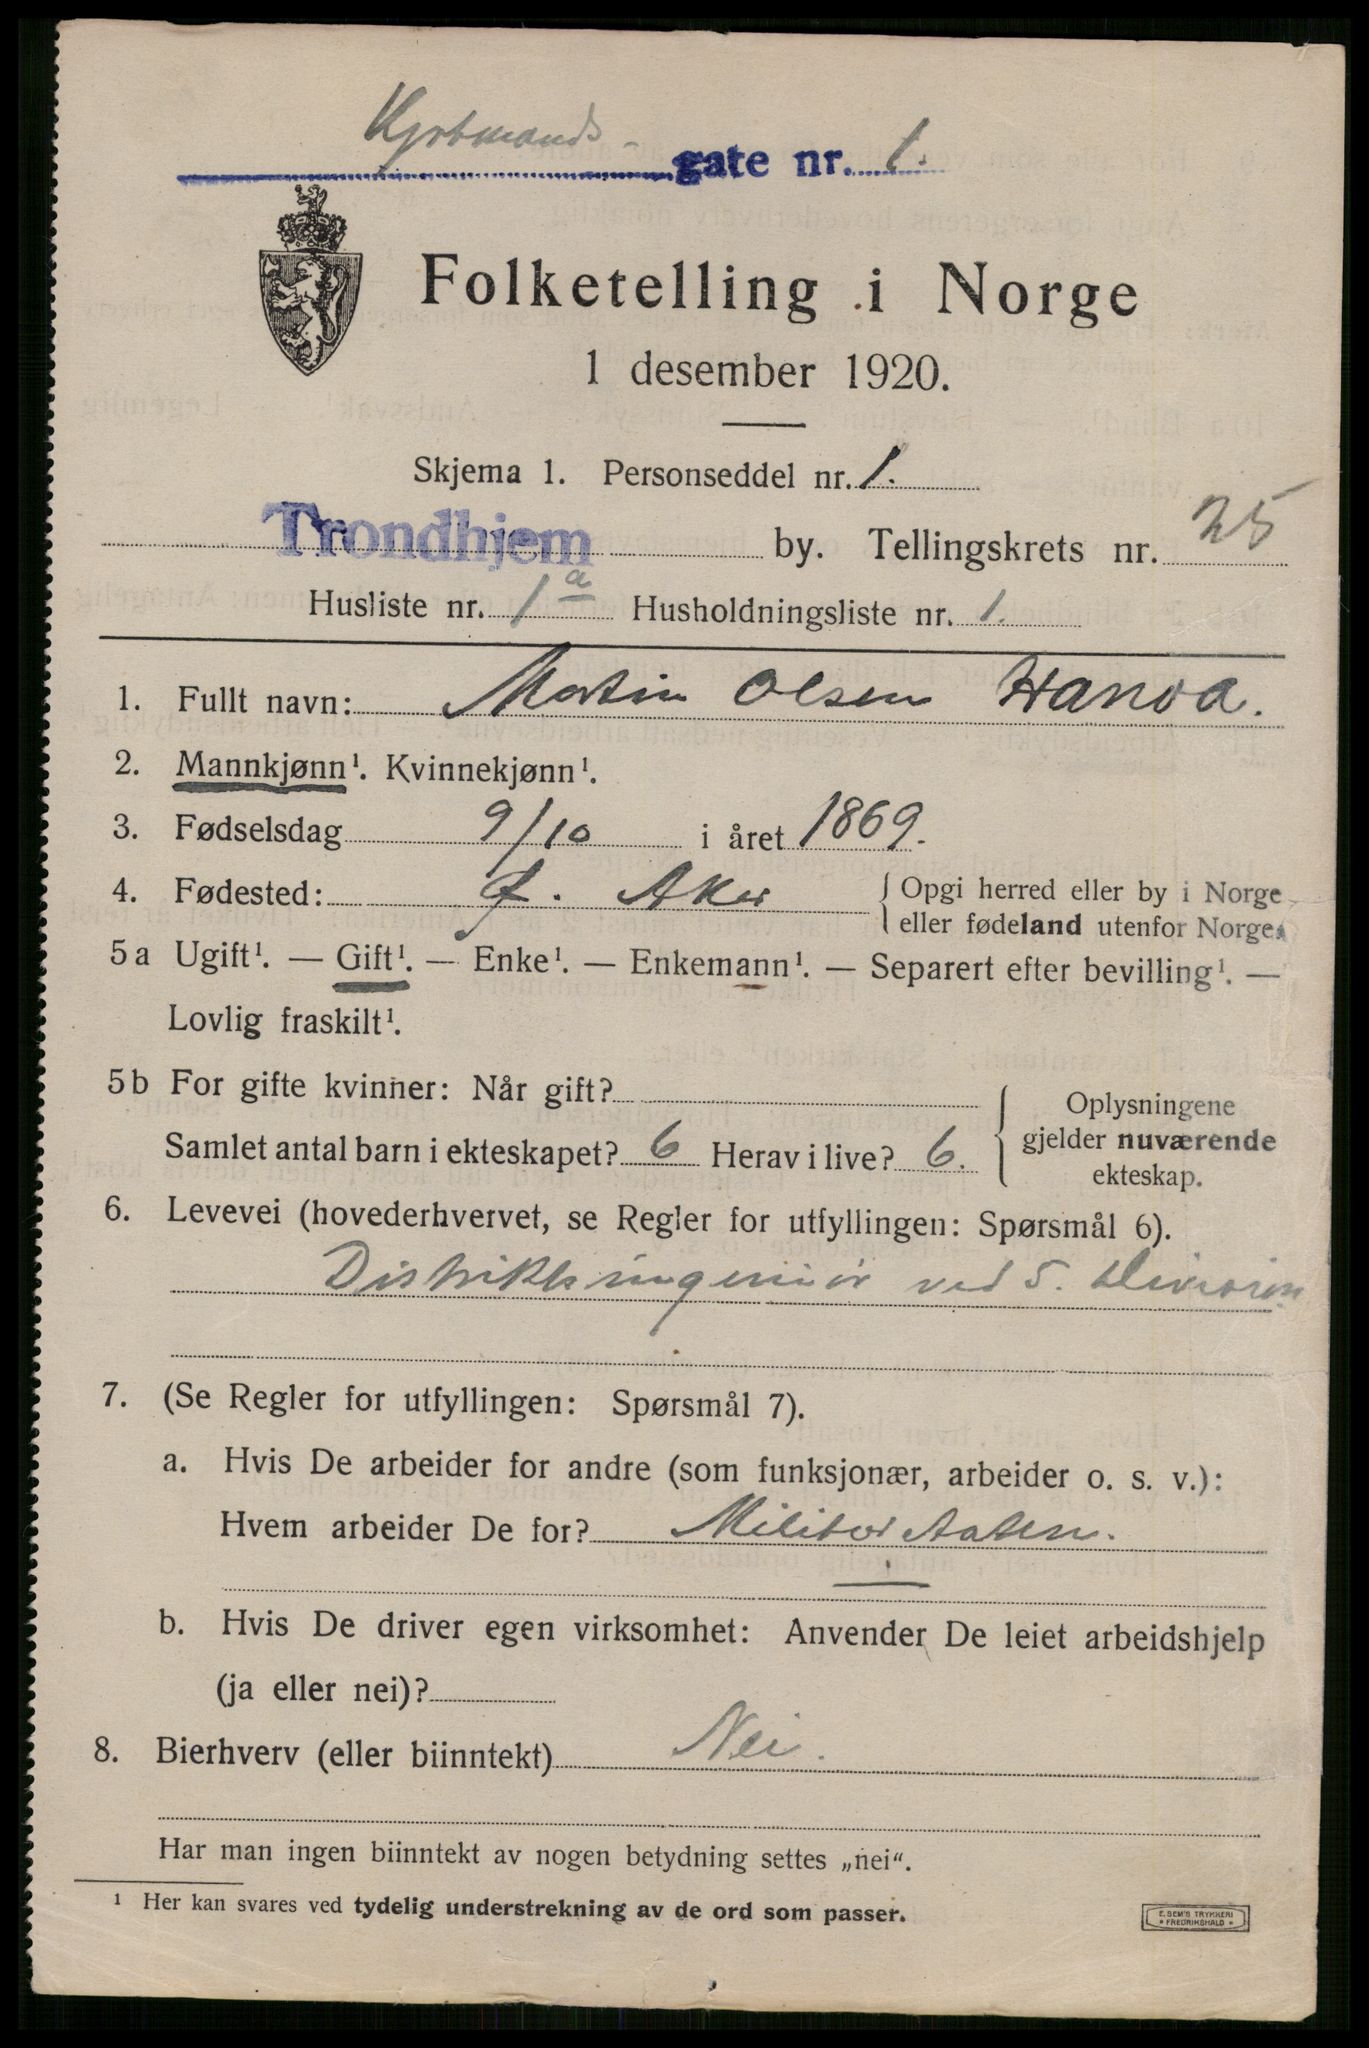 gate nr. 1.
Folketelling i Norge
1 desember 1920.
Skjema 1. Personseddel nr. 1.
Trondhjem by. Tellingskrets nr. 25
Husliste nr. 1 a Husholdningsliste nr. 1.
1. Fullt navn: Martin Olsen
2. Mannkjønn¹. Kvinnekjønn¹.
3. Fødselsdag 9/10 i året 1869.
4. Fødested: Aker { Opgi herred eller by i Norge
eller fødeland utenfor Norge.
5a Ugift¹. — Gift¹. — Enke¹. — Enkemann¹. — Separert efter bevilling¹. —
Lovlig fraskilt¹.
5b For gifte kvinner: Når gift?
Samlet antal barn i ekteskapet? 6 Herav i live? 6.
Oplysningene
gjelder nuværende
ekteskap.
6. Levevei (hovederhvervet, se Regler for utfyllingen: Spørsmål 6).
Distriktsingeniør ved 5. Division
7. (Se Regler for utfyllingen: Spørsmål 7).
a. Hvis De arbeider for andre (som funksjonær, arbeider o. s. v.):
Hvem arbeider De for?
b. Hvis De driver egen virksomhet: Anvender De leiet arbeidshjelp
(ja eller nei)?
8. Bierhverv (eller biinntekt) Nei.
Har man ingen biinntekt av nogen betydning settes „nei“.
¹ Her kan svares ved tydelig understrekning av de ord som passer.
E. SEM'S TRYKKERI
• FREDRIKSHALD •